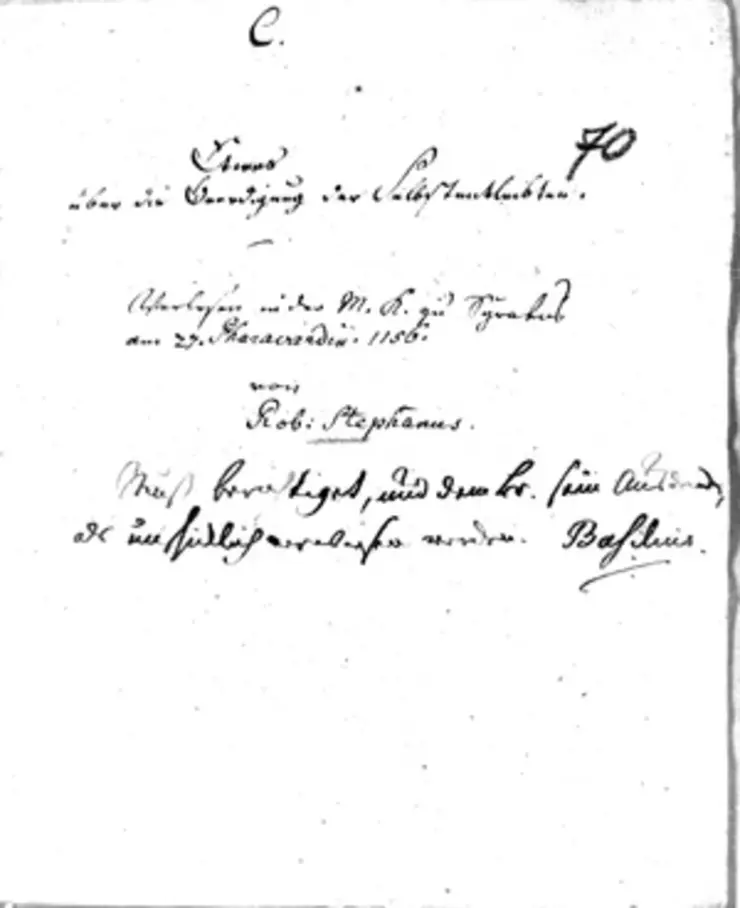 C.
70
Etwas
über die Beerdigung der Selbstentleibten.
Verlesen in der M. K. zu Syrakus
am 27. Pharavardin. 1156.
von
Rob: Stephanus.
Muß berichtiget, und dem br. sein Ausdruck,
als unschicklich verwiesen werden. Basilius.